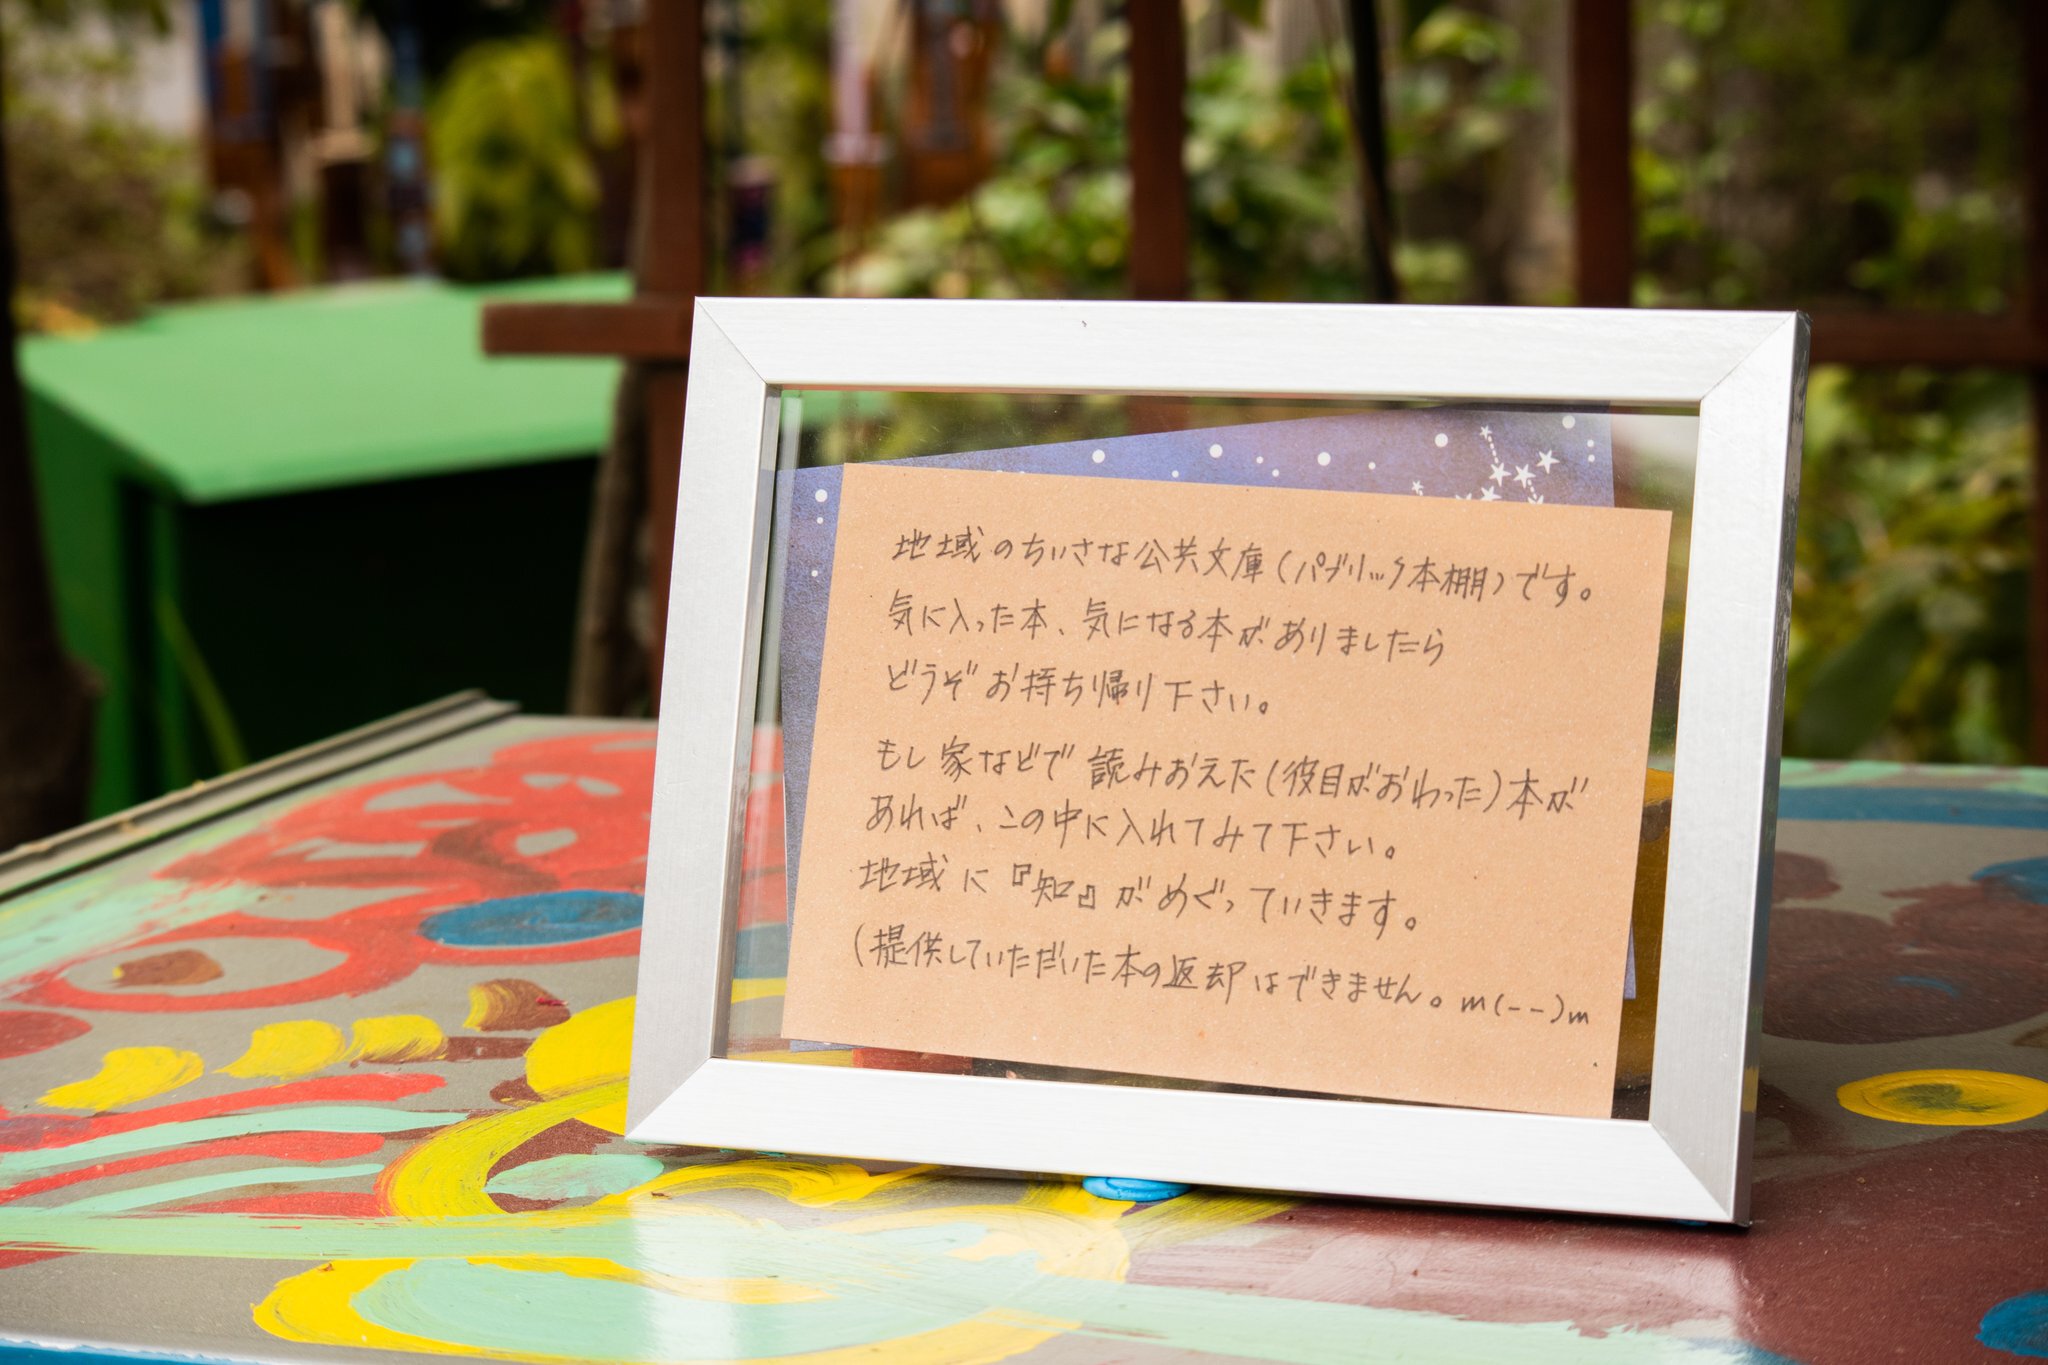 地域のちいさな公共文庫(パブリック本棚)です。
気に入った本、気になる本がありましたら
どうぞお持ち帰り下さい。
もし家などで読みおえた(役目がおわった)本が
あれば、この中に入れてみて下さい。
地域に『知』がめぐっていきます。
(提供していただいた本の返却はできません。m(--)m